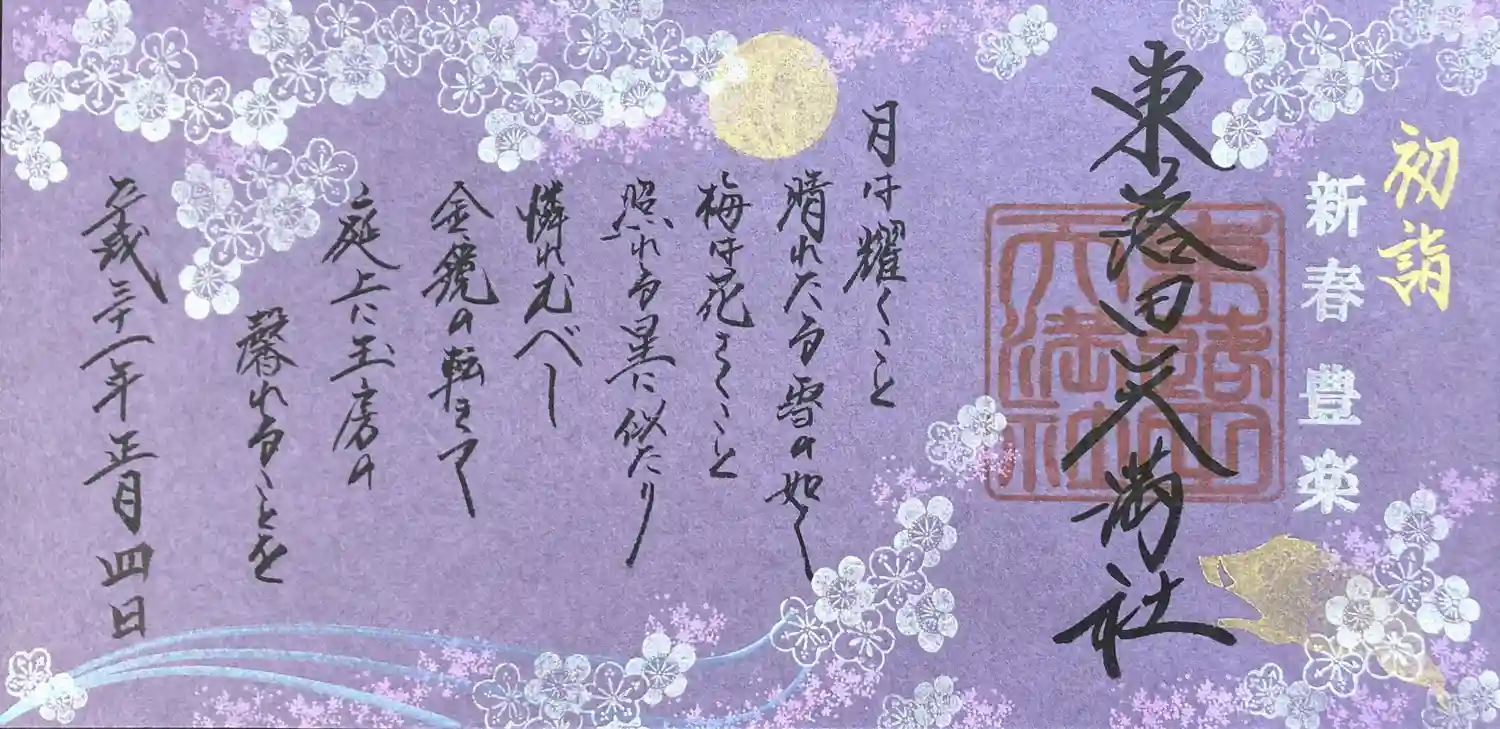 初詣
新春 豊楽
東落合天満社
月は耀くこと
晴れたる雪の如し
梅は花さくこと
照れる星に似たり
憐れむべし
金鏡の転きて
庭上に玉房の
馨れることを
平成三十一年 正月 四日